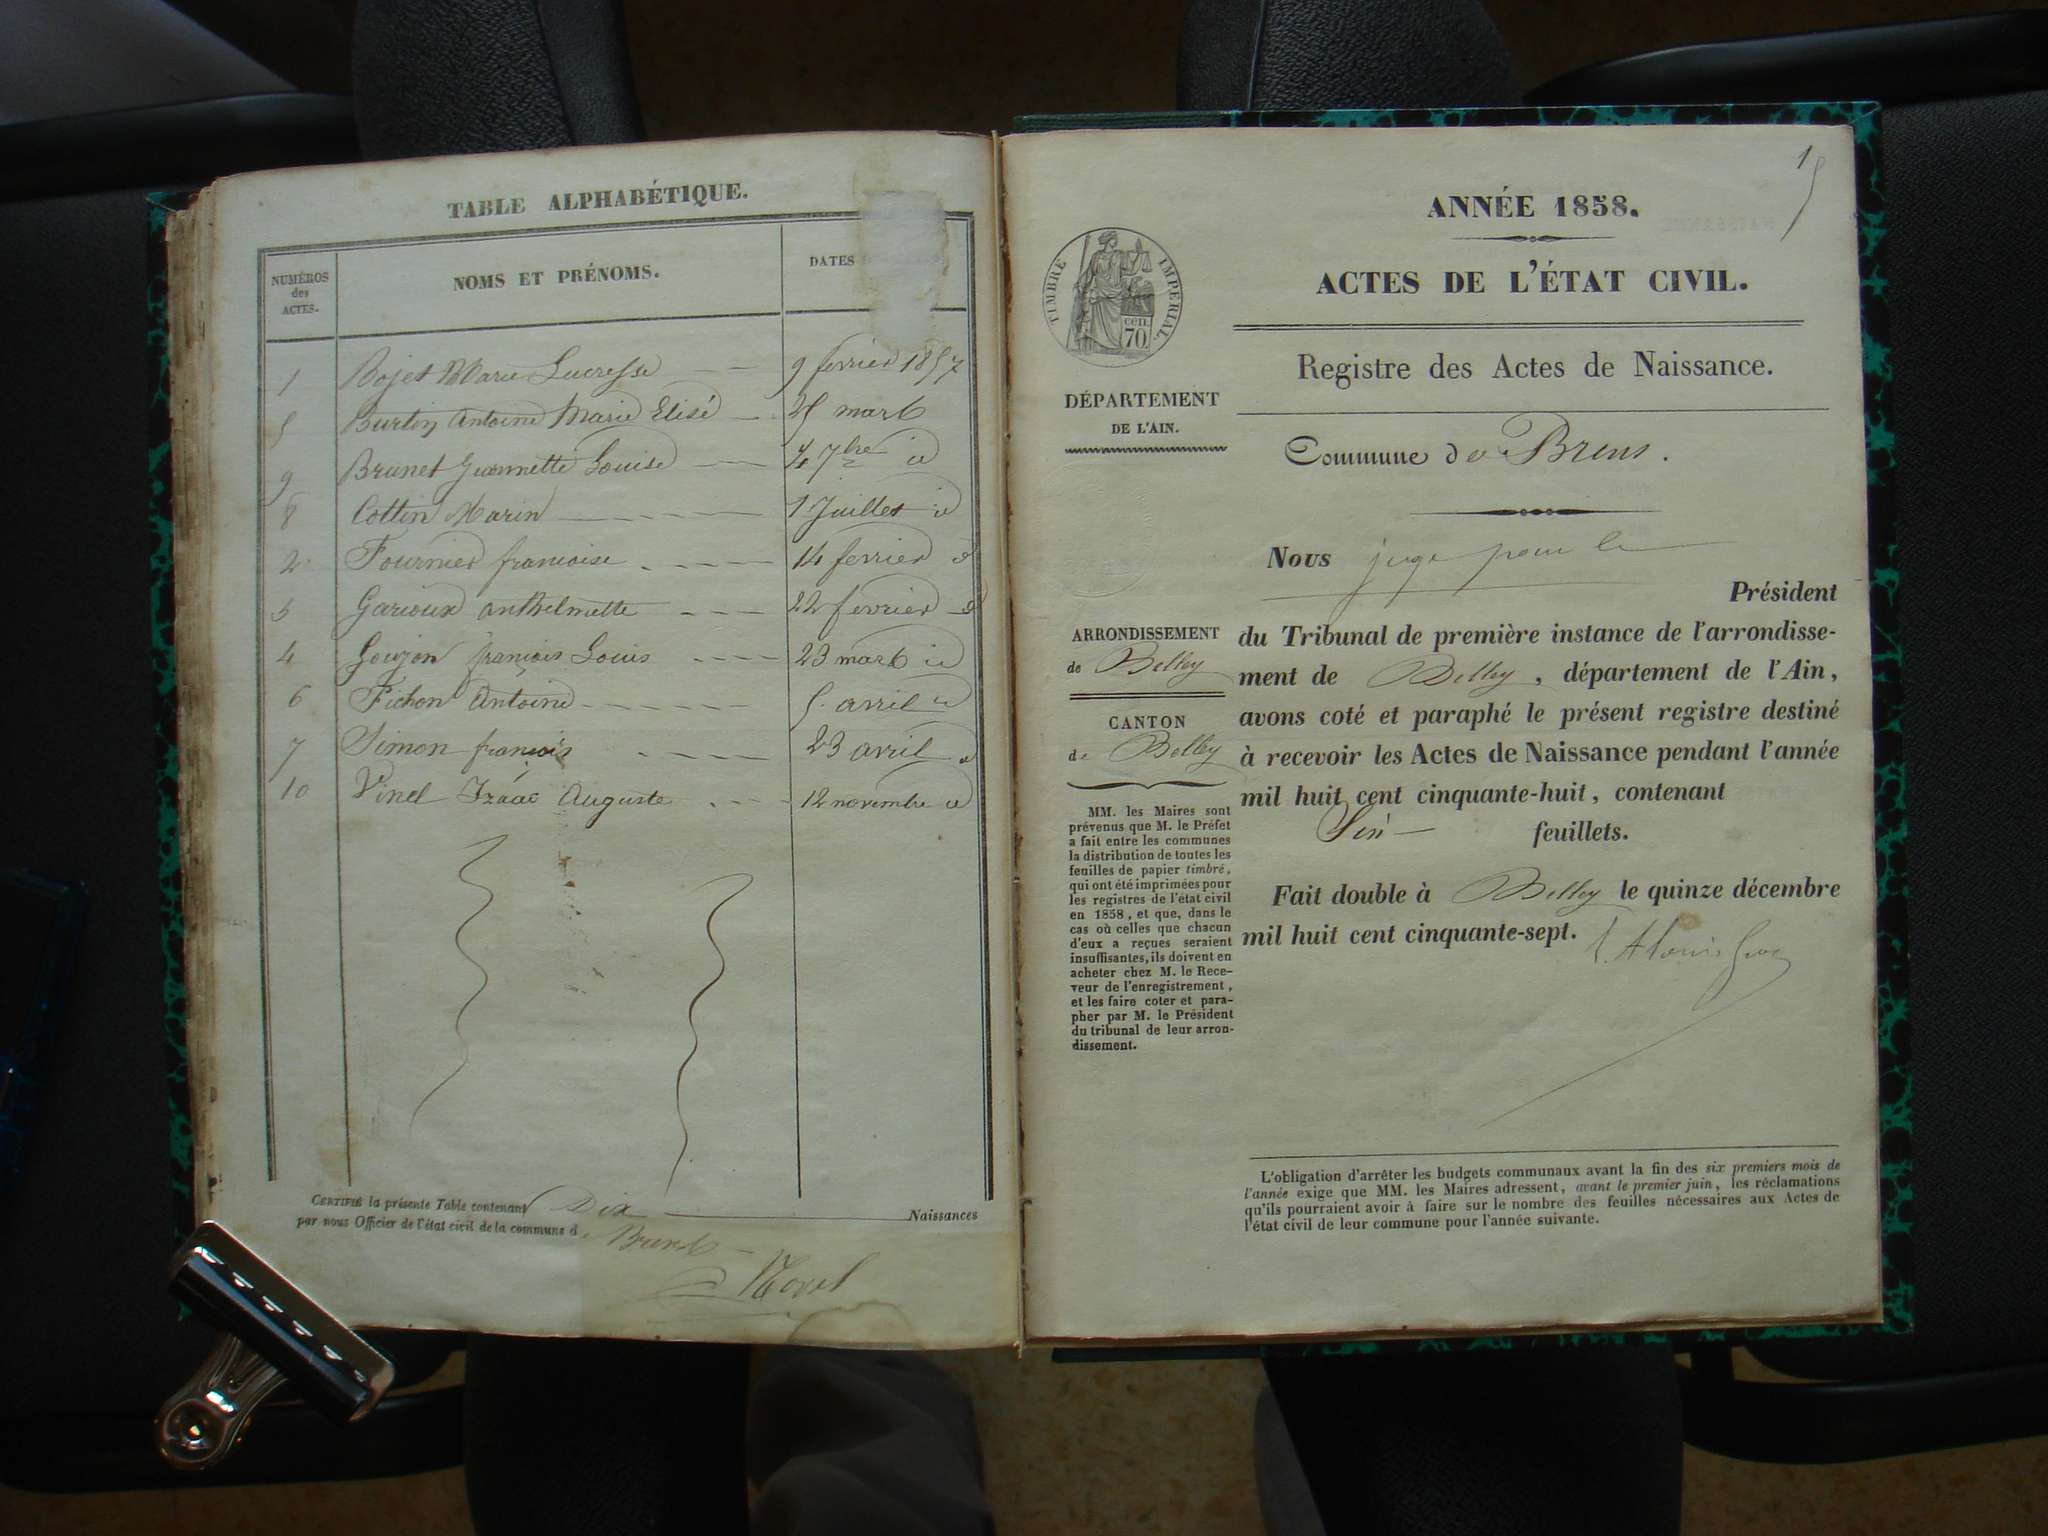 TABLE ALPHABÉTIQUE.
NUMÉROS
des
ACTES.
NOMS ET PRÉNOMS.
DATES
1 Bojet Marie Lucresse 9 fevrier 1857
5 Burtin Antoine Marie Elisé 25 mars
9 Brunet Jeannette Louise 4 7bre id
8 Cottin Marin 1 Juillet id
2 Fournier francoise 14 fevrier id
3 Garioux anthelmette 22 fevrier id
4 Goujon françois Louis 23 mars id
6 Pichon Antoine 5 avril id
7 Simon françois 23 avril id
10 Vinel Izaac Auguste 12 novembre id
CERTIFIÉ la présente Table contenant Dix Naissances
par nous Officier de l'état civil de la commune de
Brens
1
ANNÉE 1858.
ACTES DE L'ÉTAT CIVIL.
Registre des Actes de Naissance.
Commune de Brens.
TIMBRE IMPÉRIAL.
70 cen.
DÉPARTEMENT
DE L'AIN.
ARRONDISSEMENT
de Belley
CANTON
de Belley
MM. les Maires sont
prévenus que M. le Préfet
a fait entre les communes
la distribution de toutes les
feuilles de papier timbré,
qui ont été imprimées pour
les registres de l'état civil
en 1858, et que, dans le
cas où celles que chacun
d'eux a reçues seraient
insuffisantes, ils doivent en
acheter chez M. le Rece-
veur de l'enregistrement,
et les faire coter et para-
pher par M. le Président
du tribunal de leur arron-
dissement.
Nous juge pour le
Président
du Tribunal de première instance de l'arrondisse-
ment de Belley, département de l'Ain,
avons coté et paraphé le présent registre destiné
à recevoir les Actes de Naissance pendant l'année
mil huit cent cinquante-huit, contenant
Six feuillets.
Fait double à Belley le quinze décembre
mil huit cent cinquante-sept.
L'obligation d'arrêter les budgets communaux avant la fin des six premiers mois de
l'année exige que MM. les Maires adressent, avant le premier juin, les réclamations
qu'ils pourraient avoir à faire sur le nombre des feuilles nécessaires aux Actes de
l'état civil de leur commune pour l'année suivante.